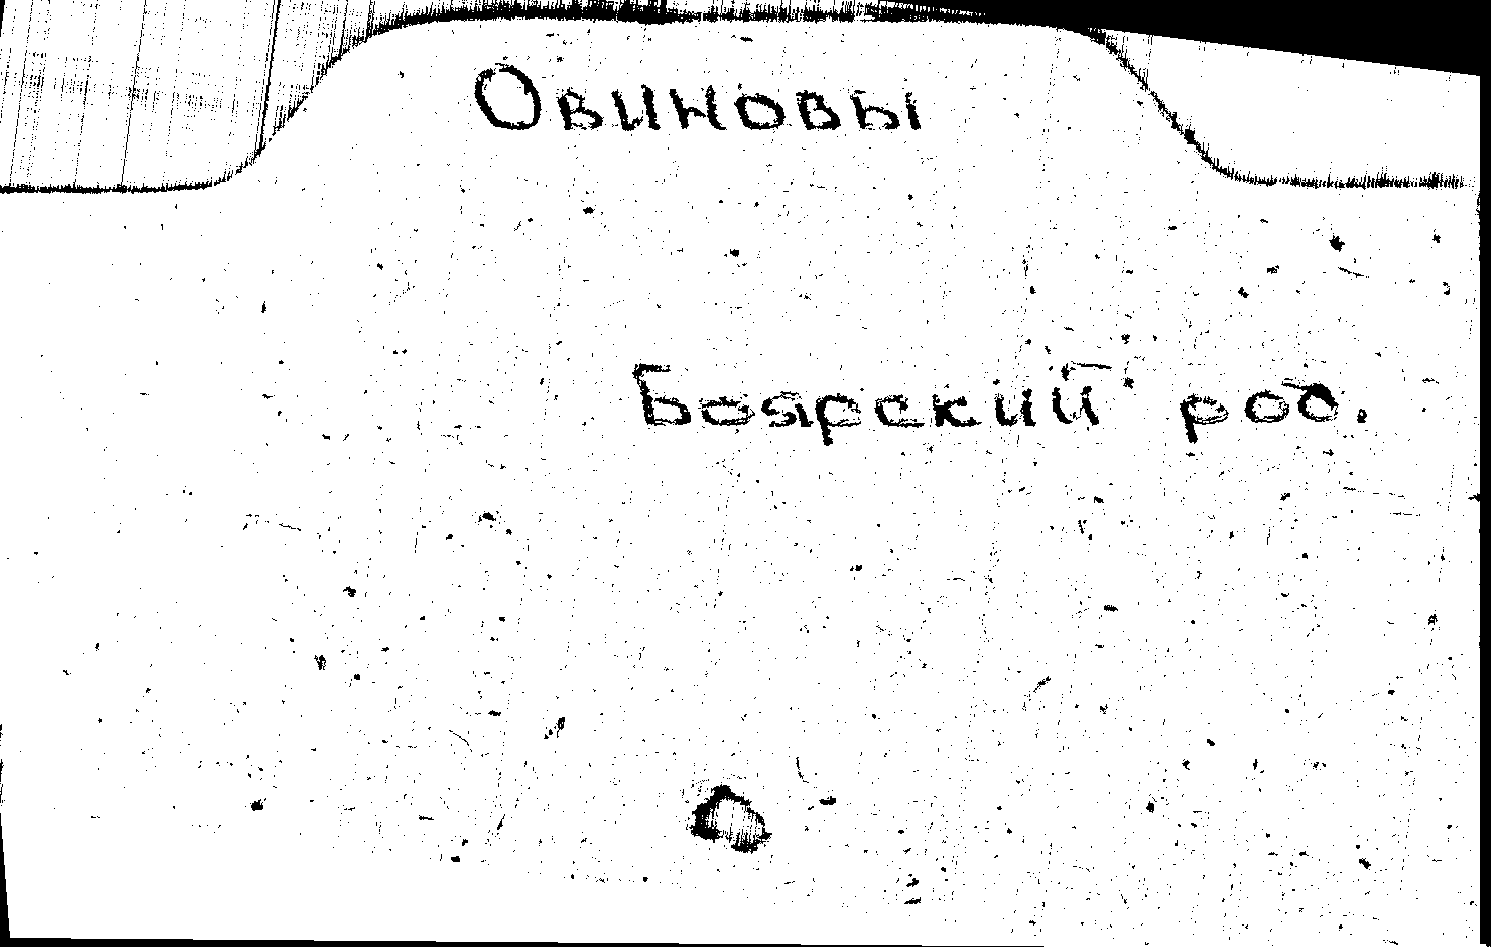 Овиновы
Боярский род.